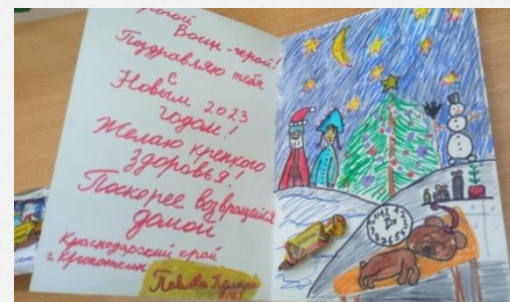 Воин-герой!
Поздравляю тебя
с
Новым 2023
годом!
Желаю крепкого
здоровья!
Поскорее возвращайся
домой
Краснодарский край
г. Кропоткин